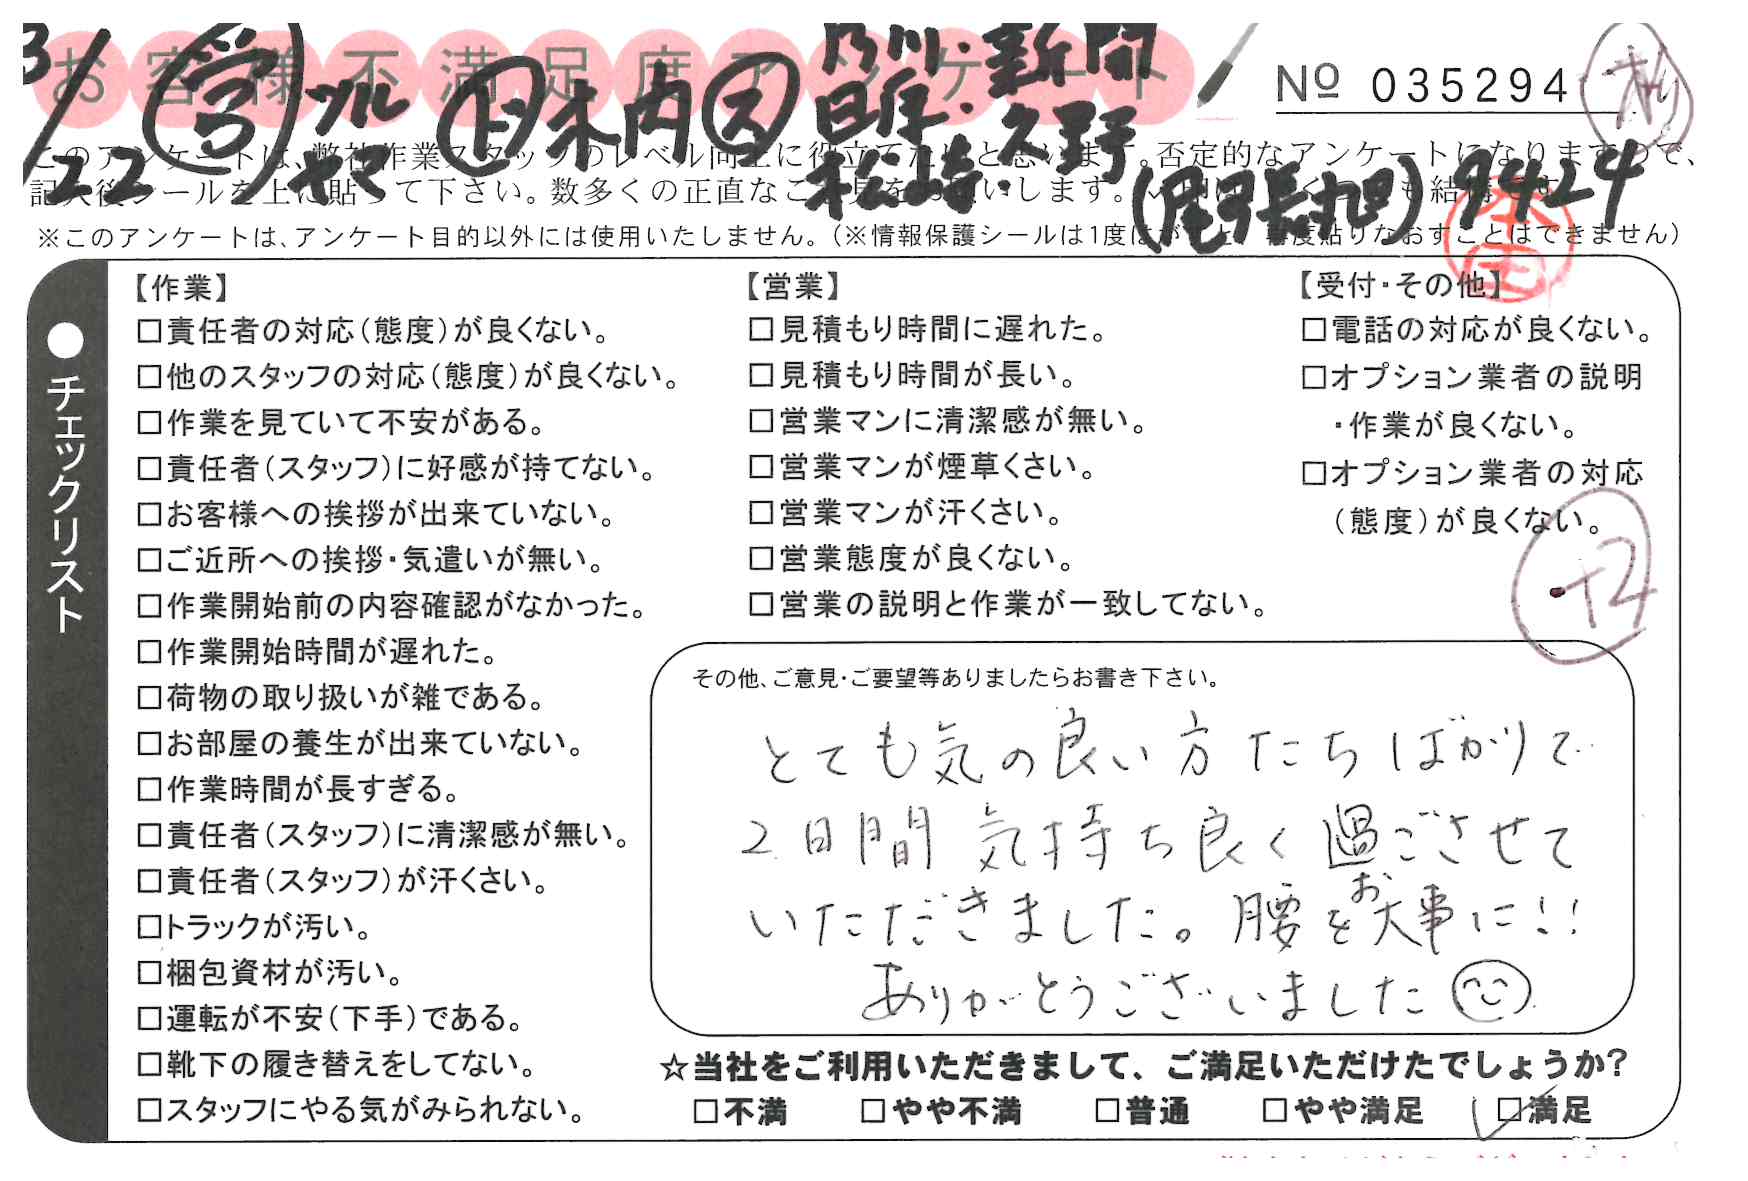 お客様不満足度アンケート
№ 035294
3/22 ㋳ フル ヤマ ㋣ 木内 ㋜ 乃川・新開 日年・久野 松崎・ (尾張旭) 9424
このアンケートは、弊社作業スタッフのレベル向上に役立てたいと思います。否定的なアンケートになりますので、
記入後シールを上に貼って下さい。数多くの正直なご意見をお願いします。
※このアンケートは、アンケート目的以外には使用いたしません。(※情報保護シールは1度はがすと、再度貼りなおすことはできません)
●チェックリスト
【作業】
□責任者の対応(態度)が良くない。
□他のスタッフの対応(態度)が良くない。
□作業を見ていて不安がある。
□責任者(スタッフ)に好感が持てない。
□お客様への挨拶が出来ていない。
□ご近所への挨拶・気遣いが無い。
□作業開始前の内容確認がなかった。
□作業開始時間が遅れた。
□荷物の取り扱いが雑である。
□お部屋の養生が出来ていない。
□作業時間が長すぎる。
□責任者(スタッフ)に清潔感が無い。
□責任者(スタッフ)が汗くさい。
□トラックが汚い。
□梱包資材が汚い。
□運転が不安(下手)である。
□靴下の履き替えをしてない。
□スタッフにやる気がみられない。
【営業】
□見積もり時間に遅れた。
□見積もり時間が長い。
□営業マンに清潔感が無い。
□営業マンが煙草くさい。
□営業マンが汗くさい。
□営業態度が良くない。
□営業の説明と作業が一致してない。
【受付・その他】
□電話の対応が良くない。
□オプション業者の説明
・作業が良くない。
□オプション業者の対応
(態度)が良くない。
+2
その他、ご意見・ご要望等ありましたらお書き下さい。
とても気の良い方たちばかりで
2日間気持ち良く過ごさせて
いただきました。腰をお大事に!!
ありがとうございました
☆当社をご利用いただきまして、ご満足いただけたでしょうか?
□不満 □やや不満 □普通 □やや満足 ☑満足